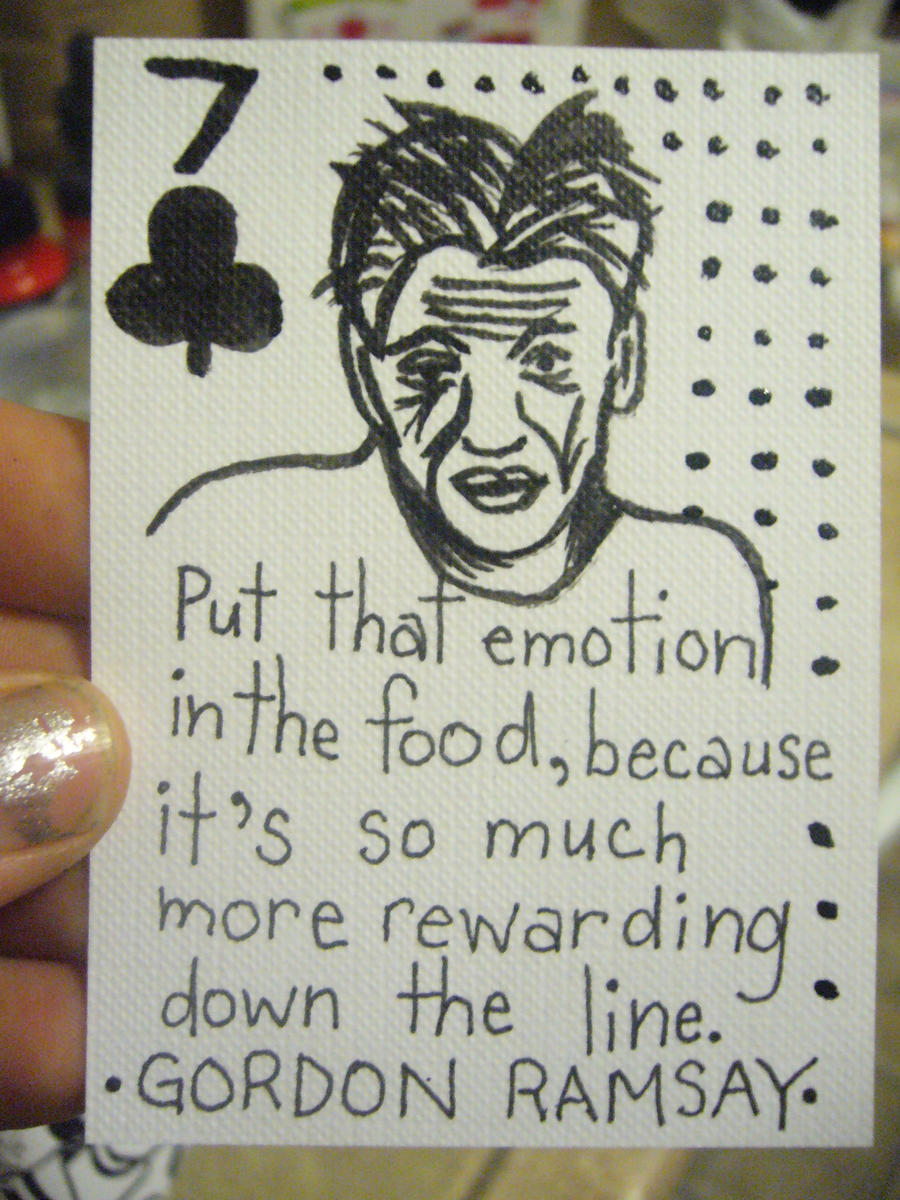 7
Put that emotion
in the food, because
it's so much
more rewarding
down the line.
•GORDON RAMSAY•